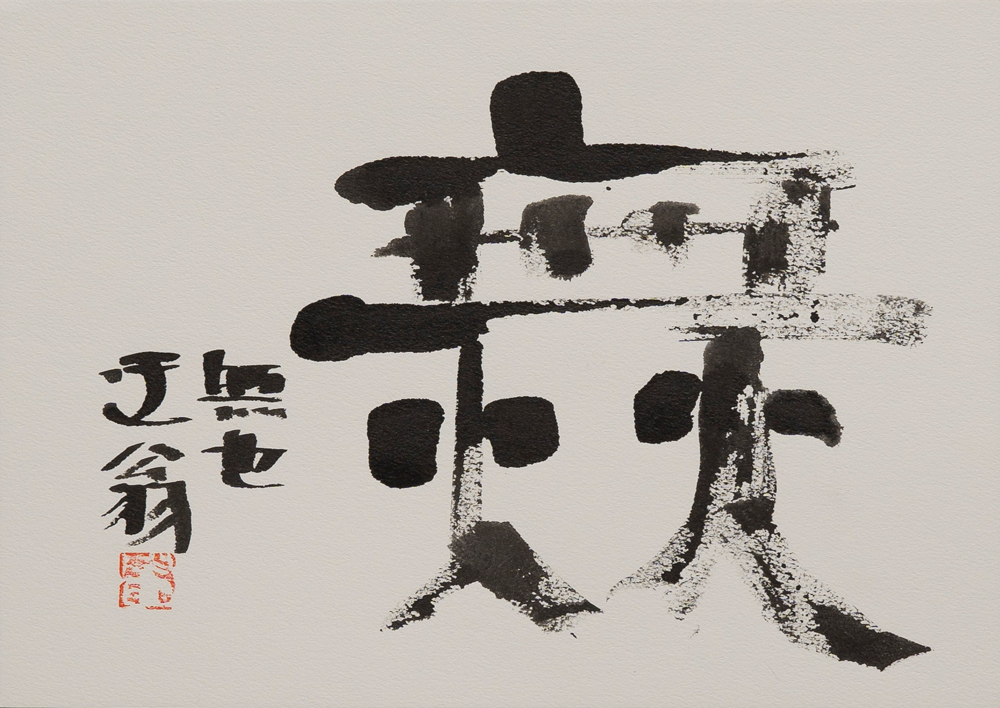 無
無也
迂翁